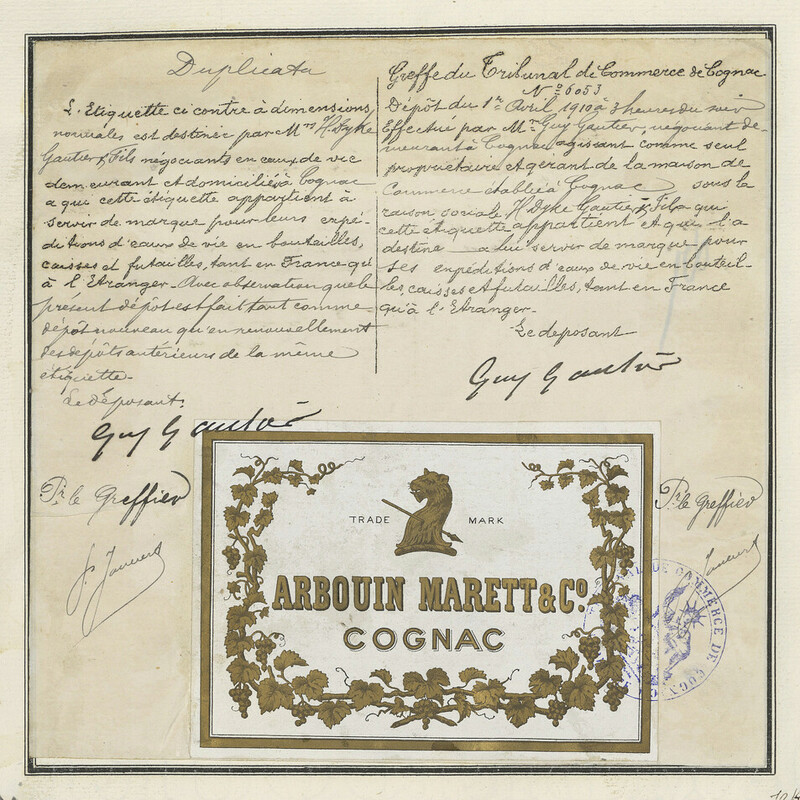 Duplicata
L'Etiquette ci contre à dimensions
normales est destinée par Mrs H. Dyke
Gautier & Fils négociants en eaux de vie
demeurant et domiciliés à Cognac
a qui cette étiquette appartient à
servir de marque pour leurs expé-
ditions d'eaux de vie en bouteilles,
caisses et futailles, tant en France qu'
à l'Etranger - Avec observation que le
présent dépôt est fait tant comme
dépôt nouveau qu'en renouvellement
des dépôts antérieurs de la même
étiquette -
Le déposant,
Guy Gautier
Pr. le Greffier
Greffe du Tribunal de Commerce de Cognac
No 6053
Dépôt du 1er Avril 1910 à 3 heures du soir
Effectué par Mr Guy Gautier, négociant de-
meurant à Cognac agissant comme seul
propriétaire et gérant de la maison de
Commerce établie à Cognac sous la
raison sociale H. Dyke Gautier & Fils qui
cette étiquette appartient et qui l'a
destine a lui servir de marque pour
ses expéditions d'eaux de vie en bouteil-
les, caisses et futailles, tant en France
qu'à l'Etranger -
Le deposant
Guy Gautier
Pr. le Greffier
TRADE MARK
ARBOUIN MARETT & Co.
COGNAC
DE COMMERCE DE COGNAC